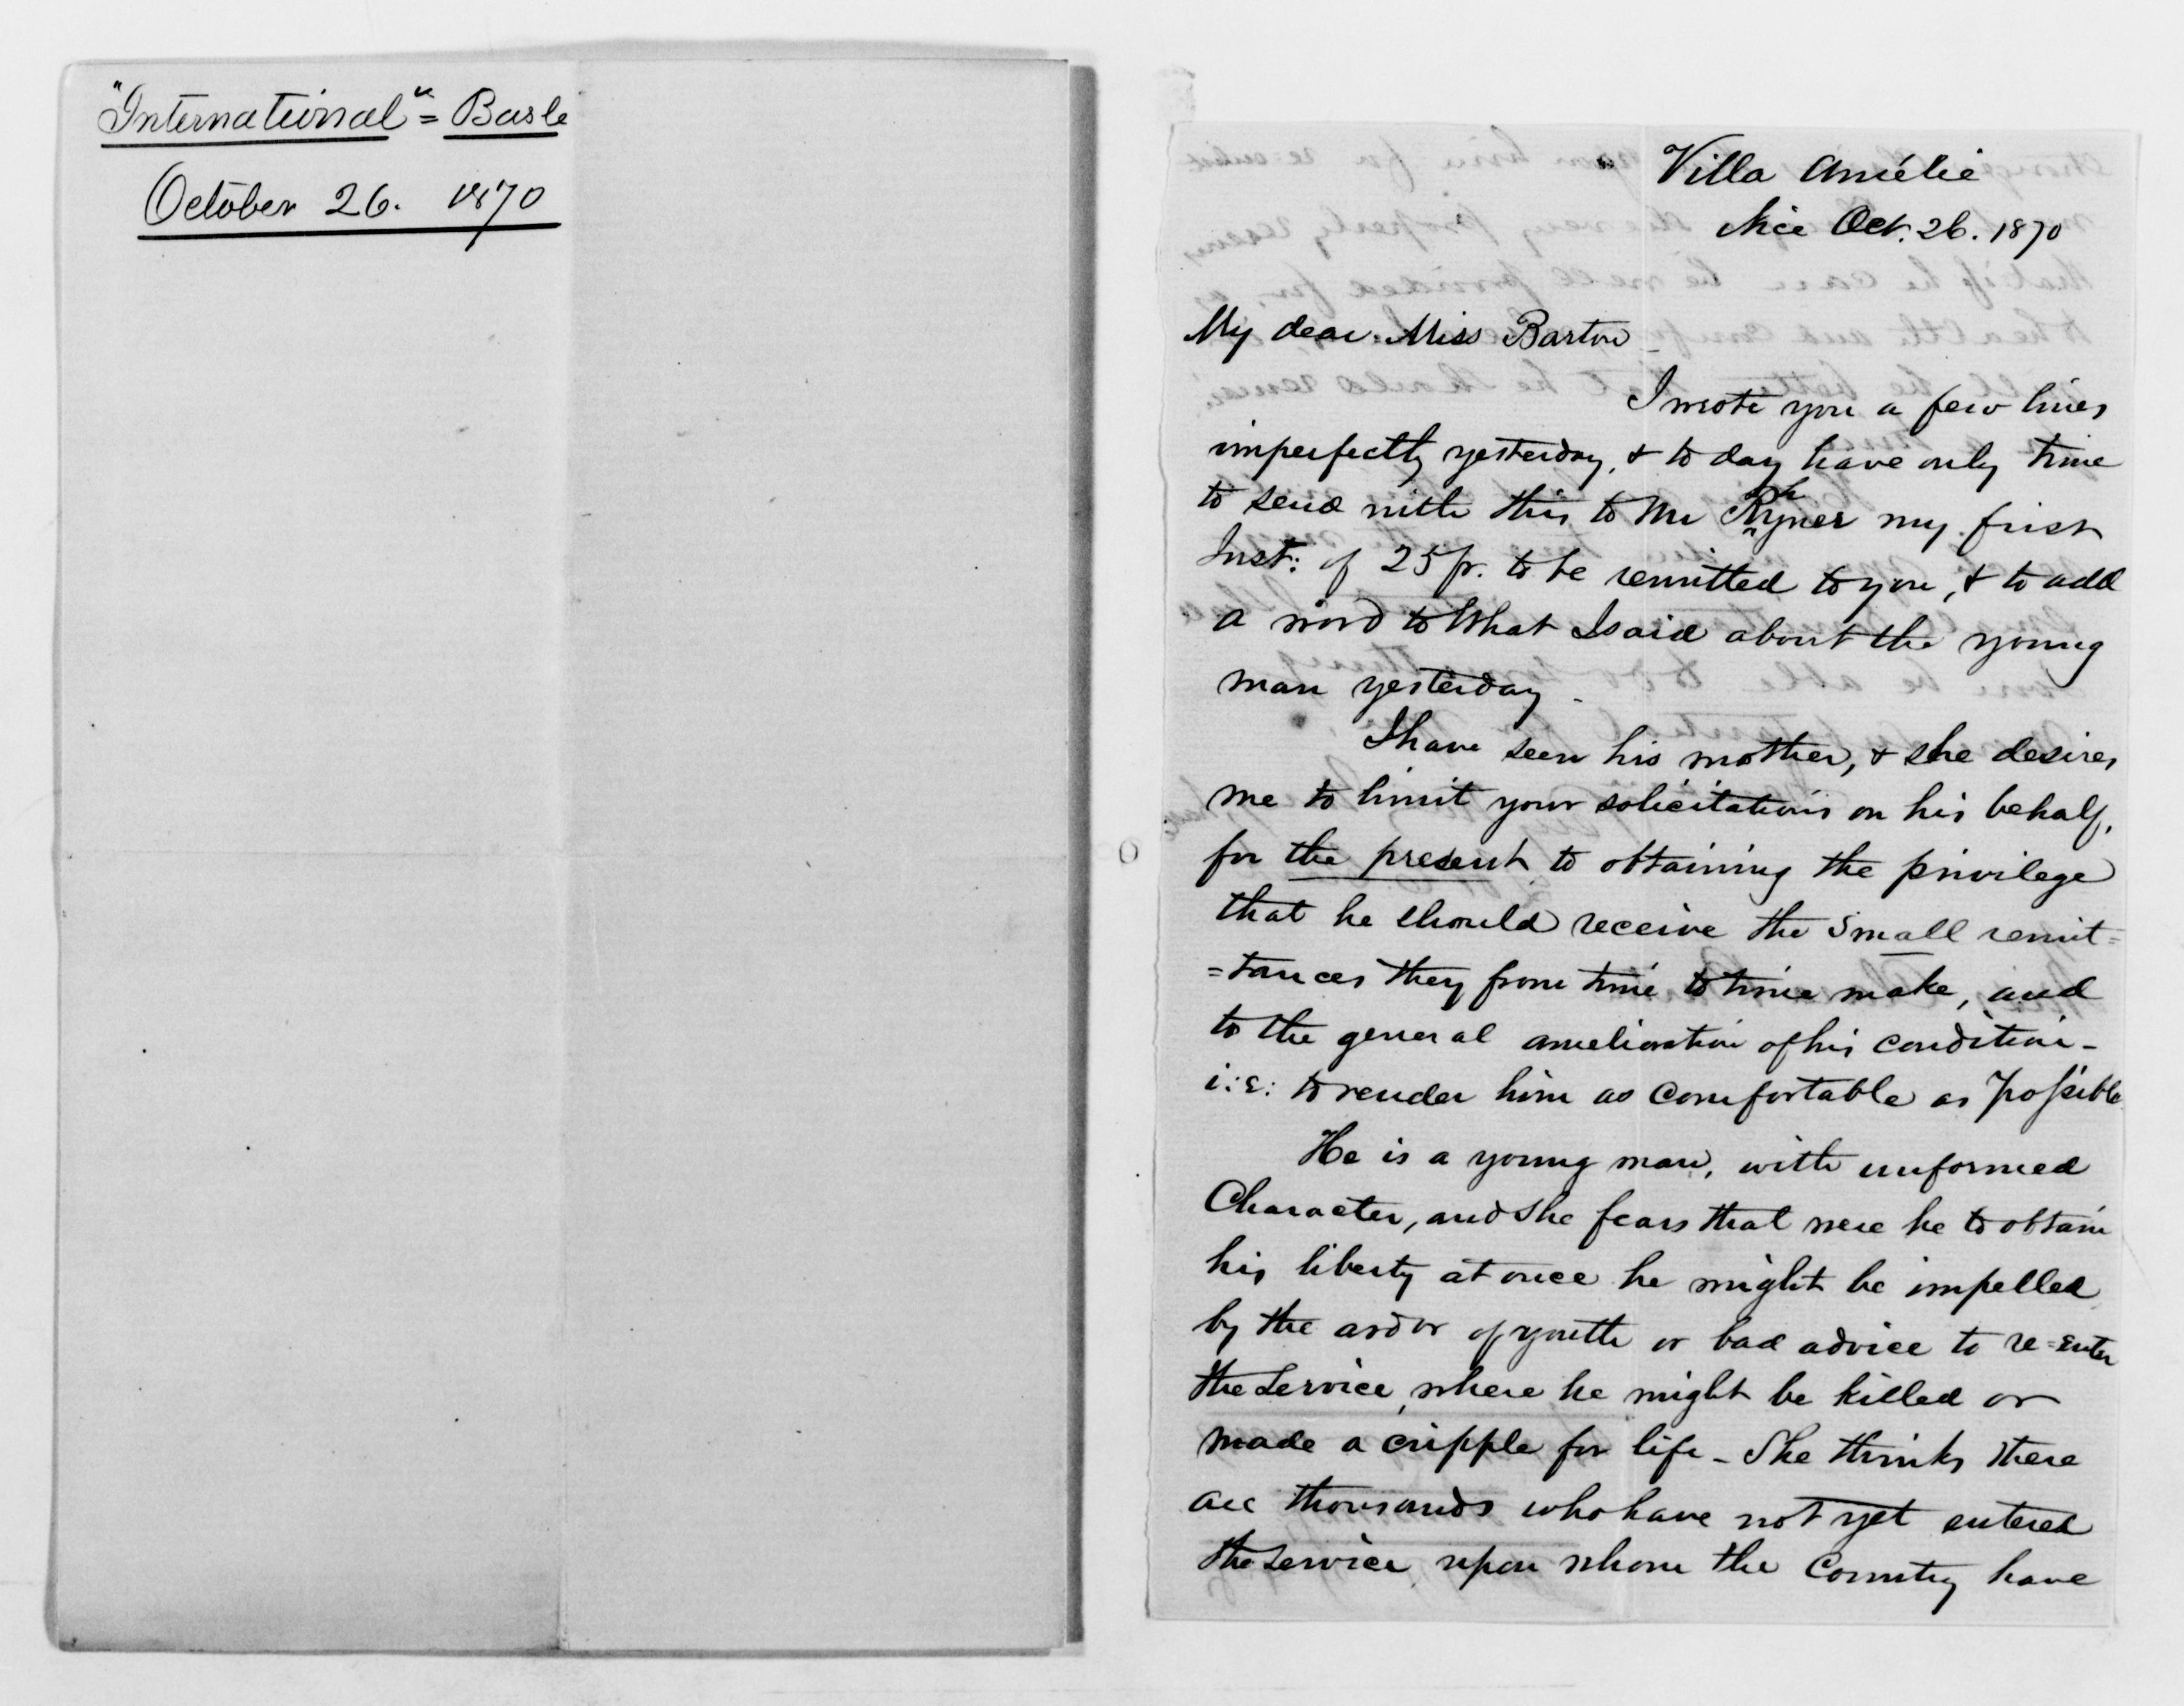 "International" = Basle
October 26. 1870
Villa Amélie
Nice Oct. 26. 1870
My dear Miss Barton
I wrote you a few lines
imperfectly yesterday, & to day have only time
to send with this to Mr Rhyner my first
Inst: of 25 fr. to be remitted to you, & to add
a word to what I said about the young
man yesterday -
I have seen his mother, & she desires
me to limit your solicitations on his behalf,
for the present to obtaining the privilege
that he should receive the small remit=
=tances they from time to time make, and
to the general amelioration of his condition -
i: e: to render him as comfortable as possible
He is a young man, with unformed
Character, and she fears that were he to obtain
his liberty at once he might be impelled
by the ardor of youth or bad advice to re=enter
the service, where he might be killed or
made a cripple for life - She thinks there
are thousands who have not yet entered
the service upon whom the Country have